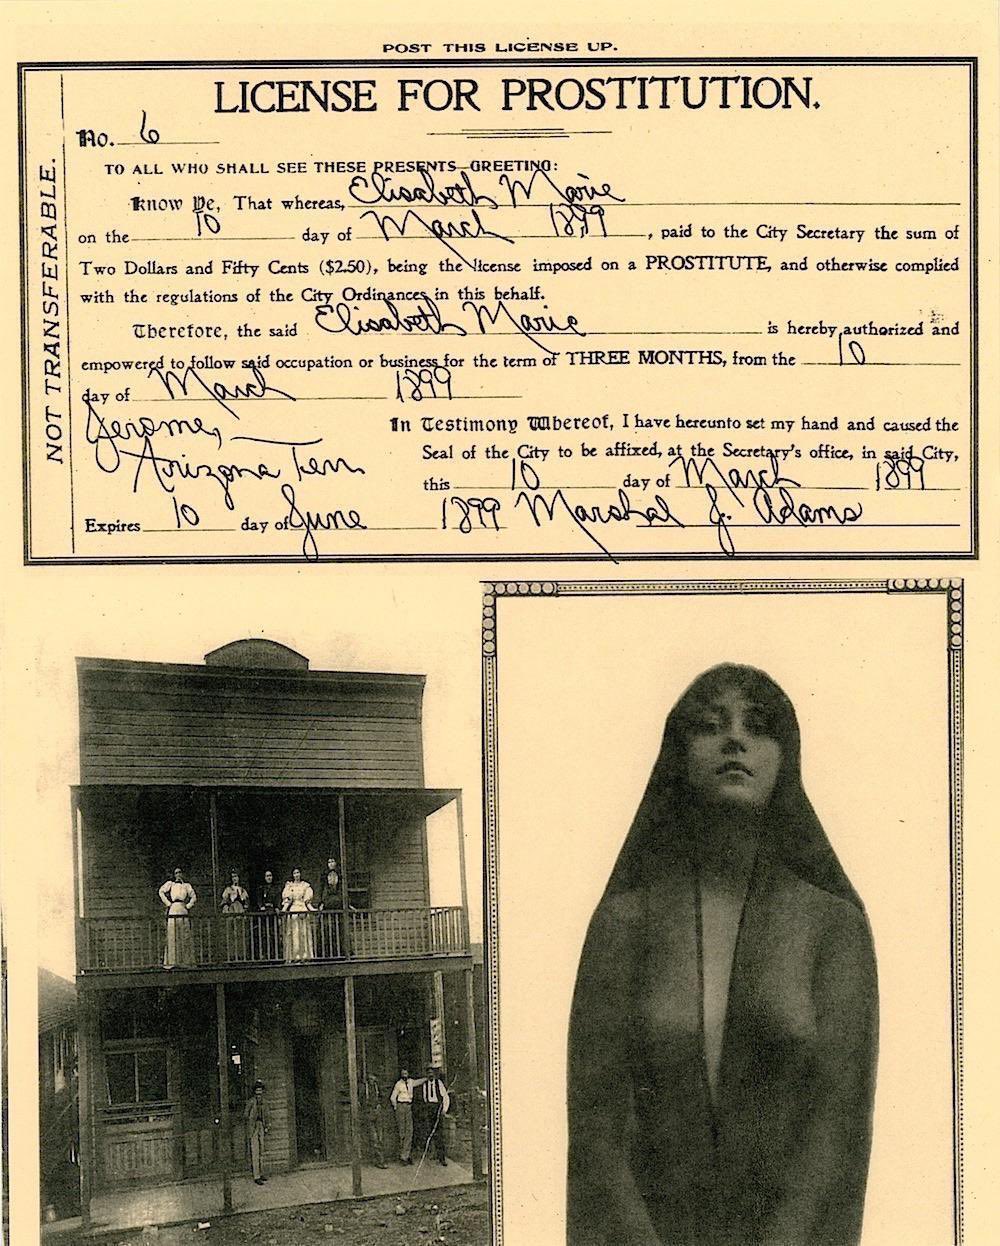 POST THIS LICENSE UP.
LICENSE FOR PROSTITUTION.
NOT TRANSFERABLE.
No. 6
TO ALL WHO SHALL SEE THESE PRESENTS GREETING:
Know Ye, That whereas, Elisabeth Marie
on the 10 day of March 1899, paid to the City Secretary the sum of
Two Dollars and Fifty Cents ($2.50), being the license imposed on a PROSTITUTE, and otherwise complied
with the regulations of the City Ordinances in this behalf.
Therefore, the said Elisabeth Marie is hereby authorized and
empowered to follow said occupation or business for the term of THREE MONTHS, from the 10
day of March 1899
Jerome,
Arizona Terr
In Testimony Whereof, I have hereunto set my hand and caused the
Seal of the City to be affixed, at the Secretary's office, in said City,
this 10 day of March 1899
Expires 10 day of June 1899 Marshal J. Adams